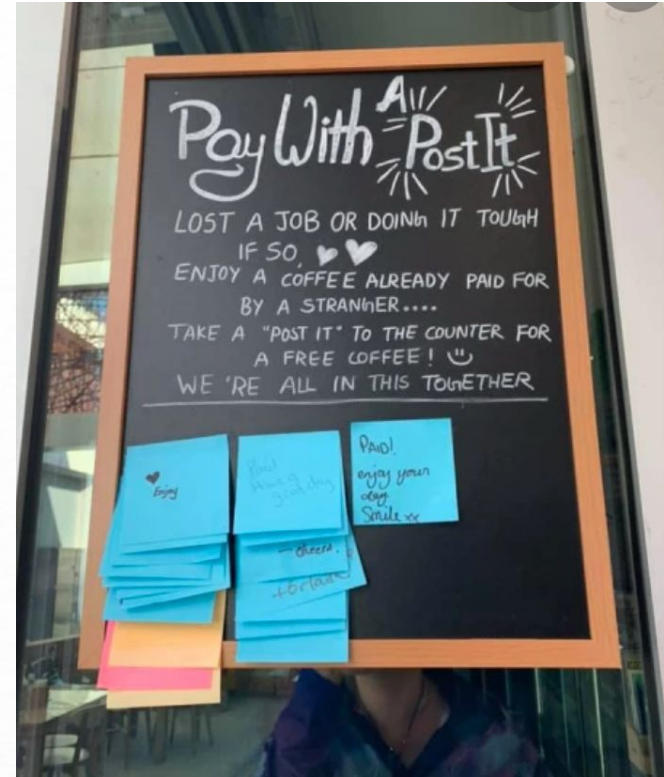 Pay With A Post It
LOST A JOB OR DOING IT TOUGH
IF SO,
ENJOY A COFFEE ALREADY PAID FOR
BY A STRANGER....
TAKE A "POST IT" TO THE COUNTER FOR
A FREE COFFEE!
WE'RE ALL IN THIS TOGETHER
Enjoy
Paid
Have a
great day
- cheers.
PAID!
enjoy your
day
Smile xx